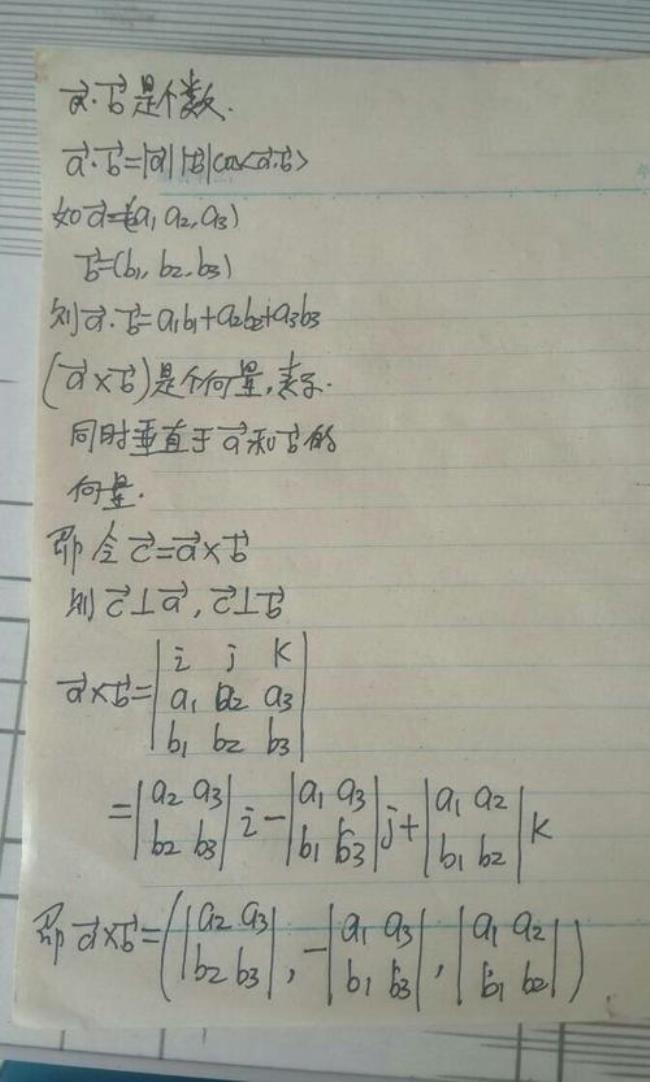 a⃗·b⃗是个数.
a⃗·b⃗=|a⃗||b⃗|cos<a⃗·b⃗>
如a⃗=(a₁,a₂,a₃)
b⃗=(b₁,b₂,b₃)
则a⃗·b⃗=a₁b₁+a₂b₂+a₃b₃
(a⃗×b⃗)是个向量,表示.
同时垂直于a⃗和b⃗的
向量.
即令c⃗=a⃗×b⃗
则c⃗⊥a⃗,c⃗⊥b⃗
a⃗×b⃗=|i j k; a₁ a₂ a₃; b₁ b₂ b₃|
=|a₂ a₃; b₂ b₃|i-|a₁ a₃; b₁ b₃|j+|a₁ a₂; b₁ b₂|k
即a⃗×b⃗=(|a₂ a₃; b₂ b₃|,-|a₁ a₃; b₁ b₃|,|a₁ a₂; b₁ b₂|)